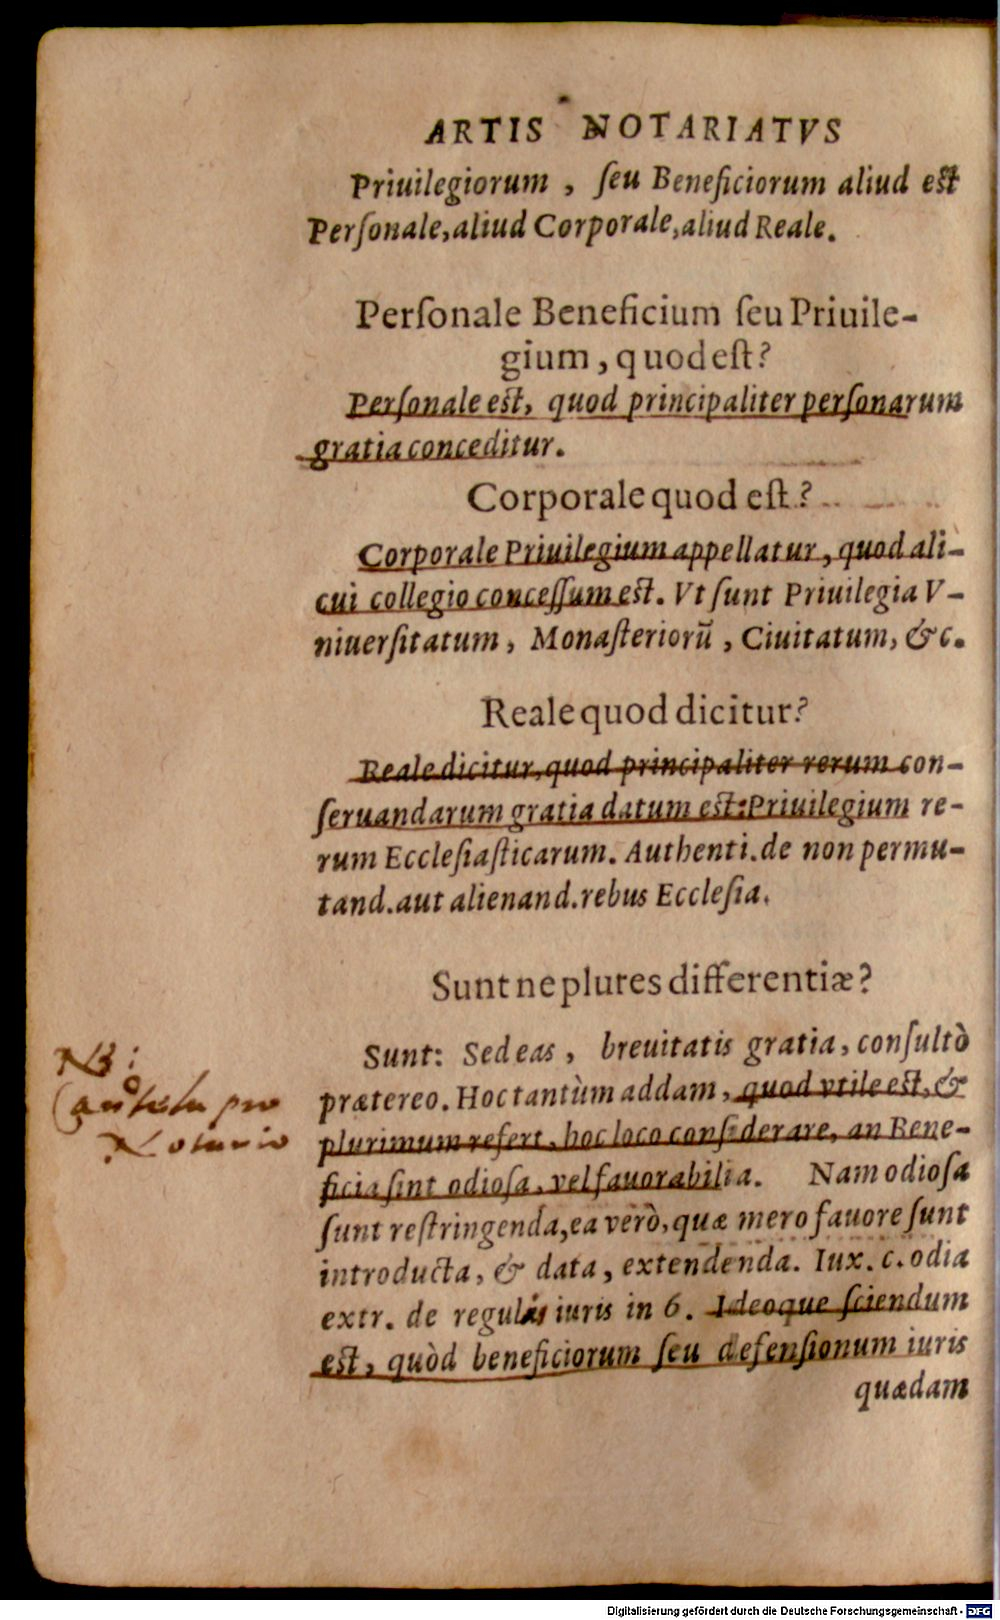 ARTIS NOTARIATVS
Priuilegiorum, ſeu Beneficiorum aliud est
Perſonale, aliud Corporale, aliud Reale.
Perſonale Beneficium ſeu Priuile-
gium, quod eſt?
Perſonale est, quod principaliter perſonarum
gratia conceditur.
Corporale quod eſt?
Corporale Priuilegium appellatur, quod ali-
cui collegio conceſſum est. Vt ſunt Priuilegia V-
niuerſitatum, Monaſteriorũ, Ciuitatum, &c.
Reale quod dicitur?
Reale dicitur, quod principaliter rerum con-
ſeruandarum gratia datum est: Priuilegium re-
rum Eccleſiaſticarum. Authenti. de non permu-
tand. aut alienand. rebus Eccleſia.
Sunt ne plures differentiæ?
Sunt: Sed eas, breuitatis gratia, conſultò
prætereo. Hoc tantùm addam, quod vtile est, &
plurimum refert, hoc loco conſiderare, an Bene-
ficia ſint odioſa, vel fauorabilia. Nam odioſa
ſunt reſtringenda, ea verò, quæ mero fauore ſunt
introducta, & data, extendenda. Iux. c. odia
extr. de regulis iuris in 6. Ideoque ſciendum
est, quòd beneficiorum ſeu defenſionum iuris
quædam
NB:
Cautela pro
Notario
Digitalisierung gefördert durch die Deutsche Forschungsgemeinschaft - DFG